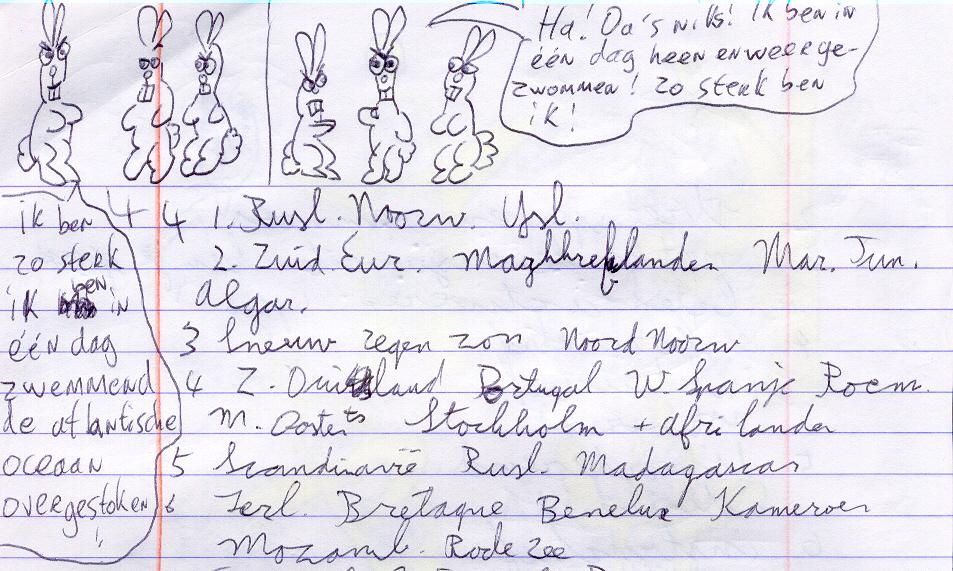 Ha! Da's niks! Ik ben in
één dag heen en weer ge-
zwommen! Zo sterk ben
ik!
ik ben
zo sterk
ik ben in
één dag
zwemmend
de atlantische
oceaan
overgestoken
!
44 1. Rusl. Noorw. Ysl.
2. Zuid Eur. Maghreblanden Mar. Tun.
Algar.
3 Sneeuw regen zon Noord Noorw
4 Z. Duitsland Portugal W. Spanje Roem.
M. Oosten Stockholm + Afri landen
5 Scandinavië Rusl. Madagascar
6 Ierl. Bretagne Benelux Kameroen
Mozamb. Rode Zee